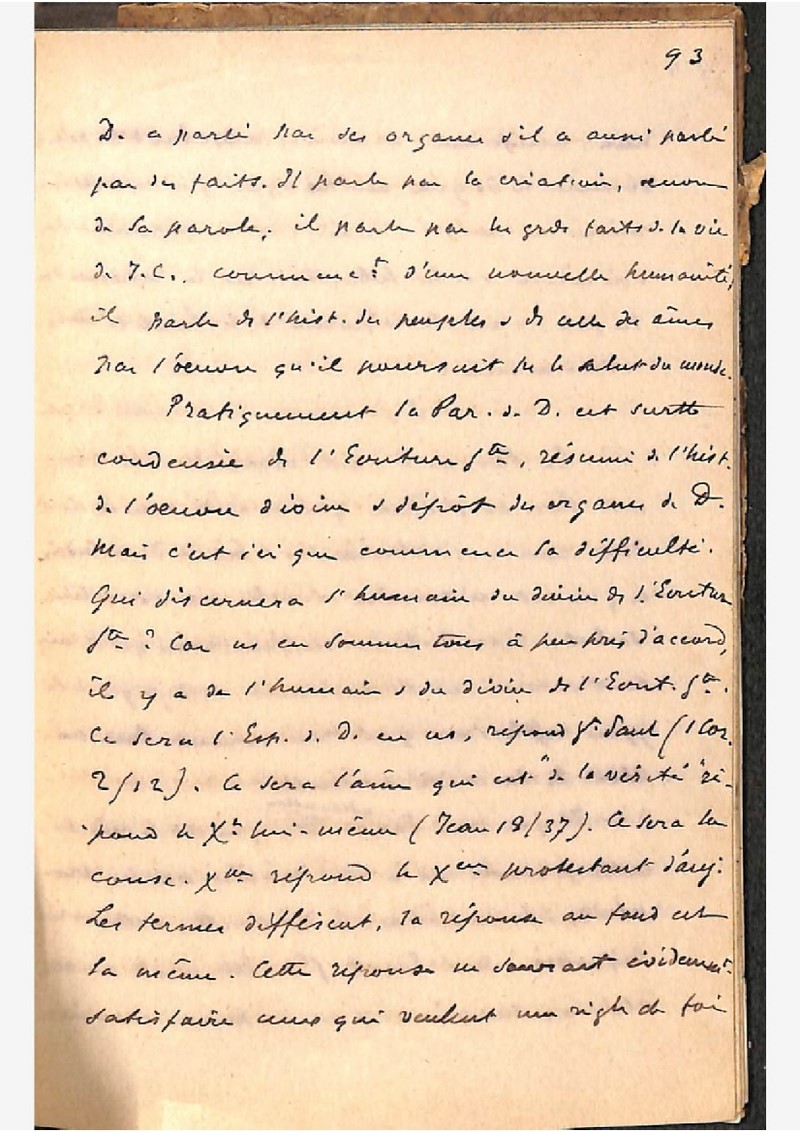 93
D. a parlé par ses organes s'il a aussi parlé
par des faits. Il parle par la création, œuvre
de sa parole; il parle par les grds faits de la vie
de J.C., commencet d'une nouvelle humanité,
il parle ds l'hist. des peuples & ds celle des âmes
par l'œuvre qu'il poursuit pr le salut du monde.
Pratiquement la Par. de D. est surtt
condensée ds l'Ecriture Ste, résumé de l'hist.
de l'œuvre divine & dépôt des organes de D.
Mais c'est ici que commence la difficulté.
Qui discernera l'humain du divin ds l'Ecriture
Ste? Car ns en sommes tous à peu près d'accord,
il y a de l'humain & du divin ds l'Ecrit. Ste.
Ce sera l'Esp. de D. en ns, répond St Paul (1 Cor.
2/12). Ce sera l'âme qui est "de la vérité" ré-
pond le Xt lui-même (Jean 18/37). Ce sera la
consc. Xne répond le Xen protestant d'auj.
Les termes diffèrent, la réponse au fond est
la même. Cette réponse ne saurait évidemmt
satisfaire ceux qui veulent une règle de foi